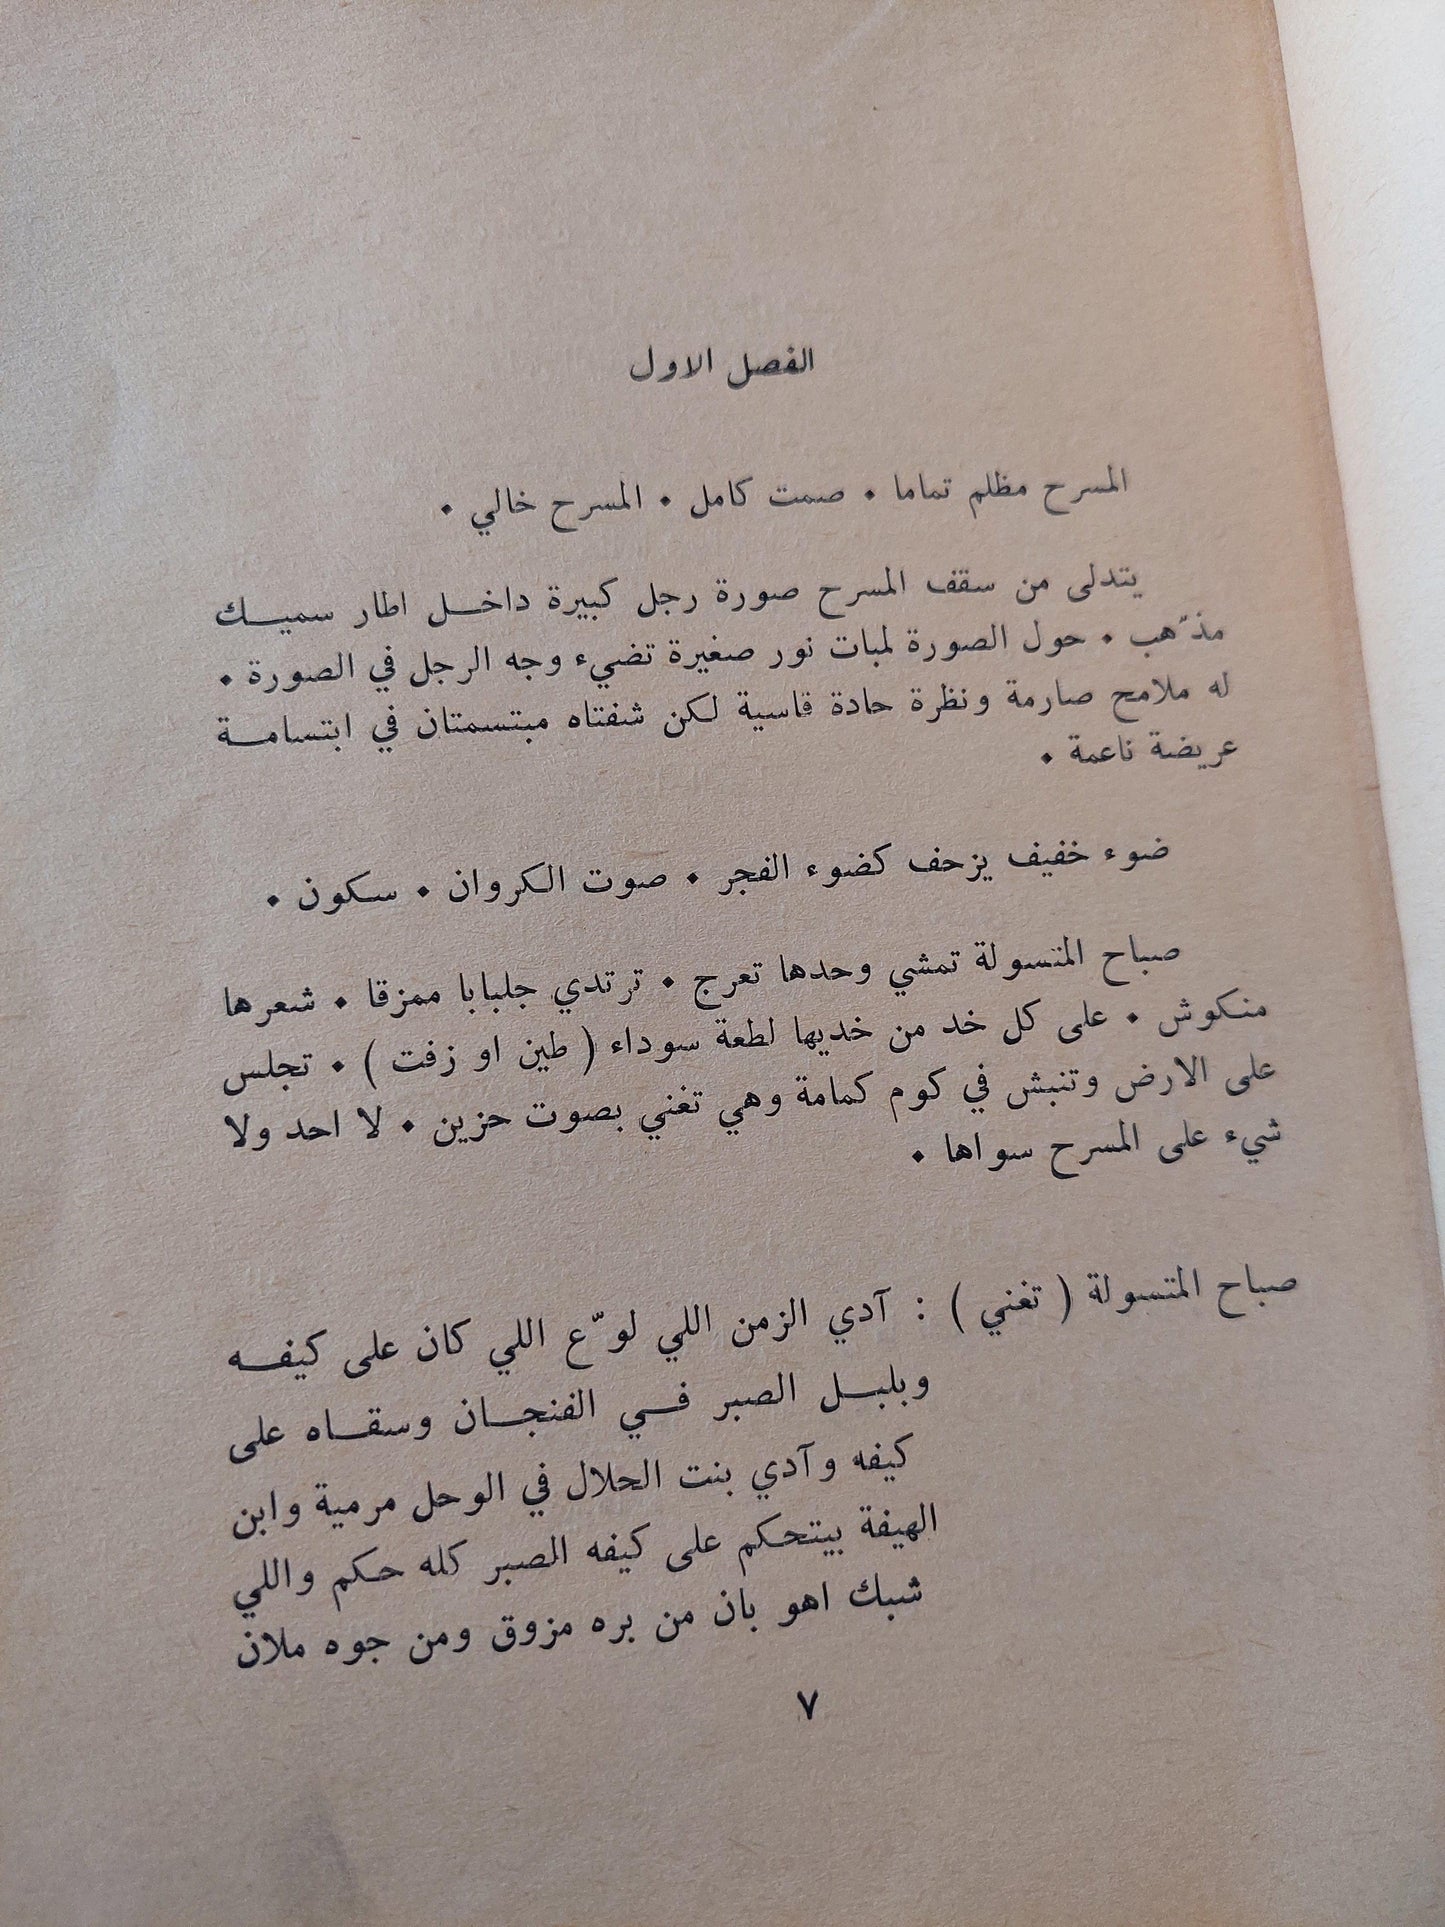 الفصل الاول
المسرح مظلم تماما . صمت كامل . المسرح خالي .
يتدلى من سقف المسرح صورة رجل كبيرة داخـل اطار سميـك
مذّهب . حول الصورة لمبات نور صغيرة تضيء وجه الرجل في الصورة .
له ملامح صارمة ونظرة حادة قاسية لكن شفتاه مبتسمتان في ابتسامـة
عريضة ناعمة .
ضوء خفيف يزحف كضوء الفجر . صوت الكروان . سكون .
صباح المتسولة تمشي وحدها تعرج . ترتدي جلبابا ممزقا . شعرها
منكوش . على كل خد من خديها لطعة سوداء ( طين او زفت ) . تجلس
على الارض وتنبش في كوم كمامة وهي تغني بصوت حزين . لا احد ولا
شيء على المسرح سواها .
صباح المتسولة ( تغني ) : آدي الزمن اللي لوّع اللي كان على كيفـه
وبلبـل الصبر فـي الفنجـان وسقـاه على
كيفه وآدي بنت الحلال في الوحل مرمية وابن
الهيفة بيتحكم على كيفه الصبر كله حكم واللي
شبك اهو بان من بره مزوق ومن جوه ملان
٧